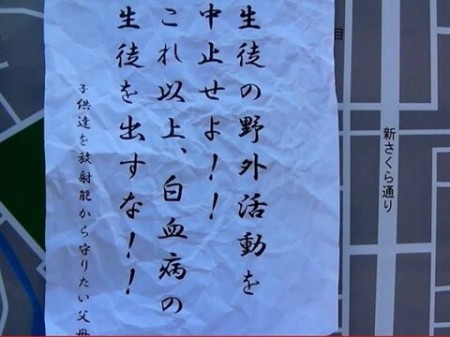 生徒の野外活動を
中止せよ！！
これ以上、白血病の
生徒を出すな！！
子供達を放射能から守りたい父母
新さくら通り
目